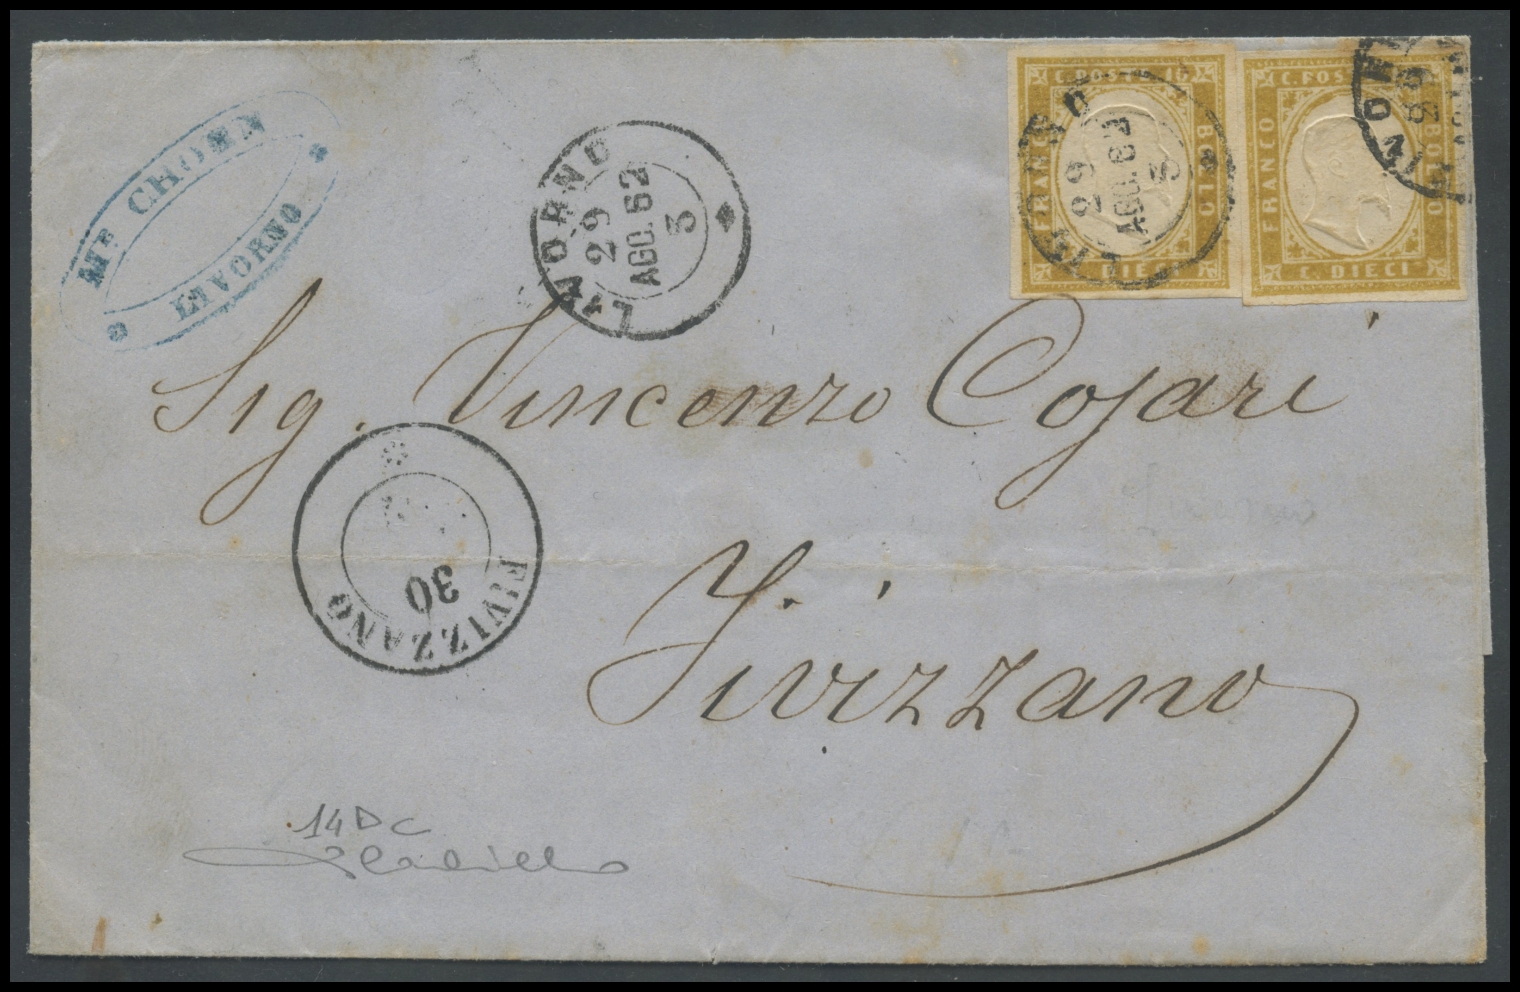 CHOEN
LIVORNO
LIVORNO
29
AGO. 62
5
C. POSTE 10
FRANCO
BOLLO
C. DIECI
LIVORNO
29
AGO. 62
5
C. POSTE
FRANCO
BOLLO
C. DIECI
Sig. Vincenzo Cojari
FIVIZZANO
30
Fivizzano
14Dc